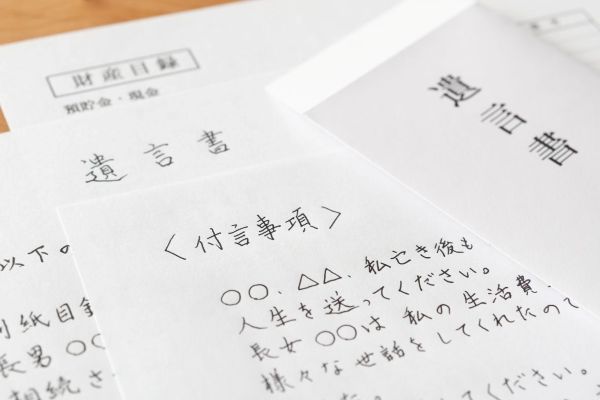 財産目録
預貯金・現金
遺言書
遺言書
以下の
別紙目録
長男〇〇
相続さ
〈付言事項〉
〇〇、△△、私亡き後も
人生を送ってください。
長女〇〇は私の生活費、
様々な世話をしてくれたので
てください。